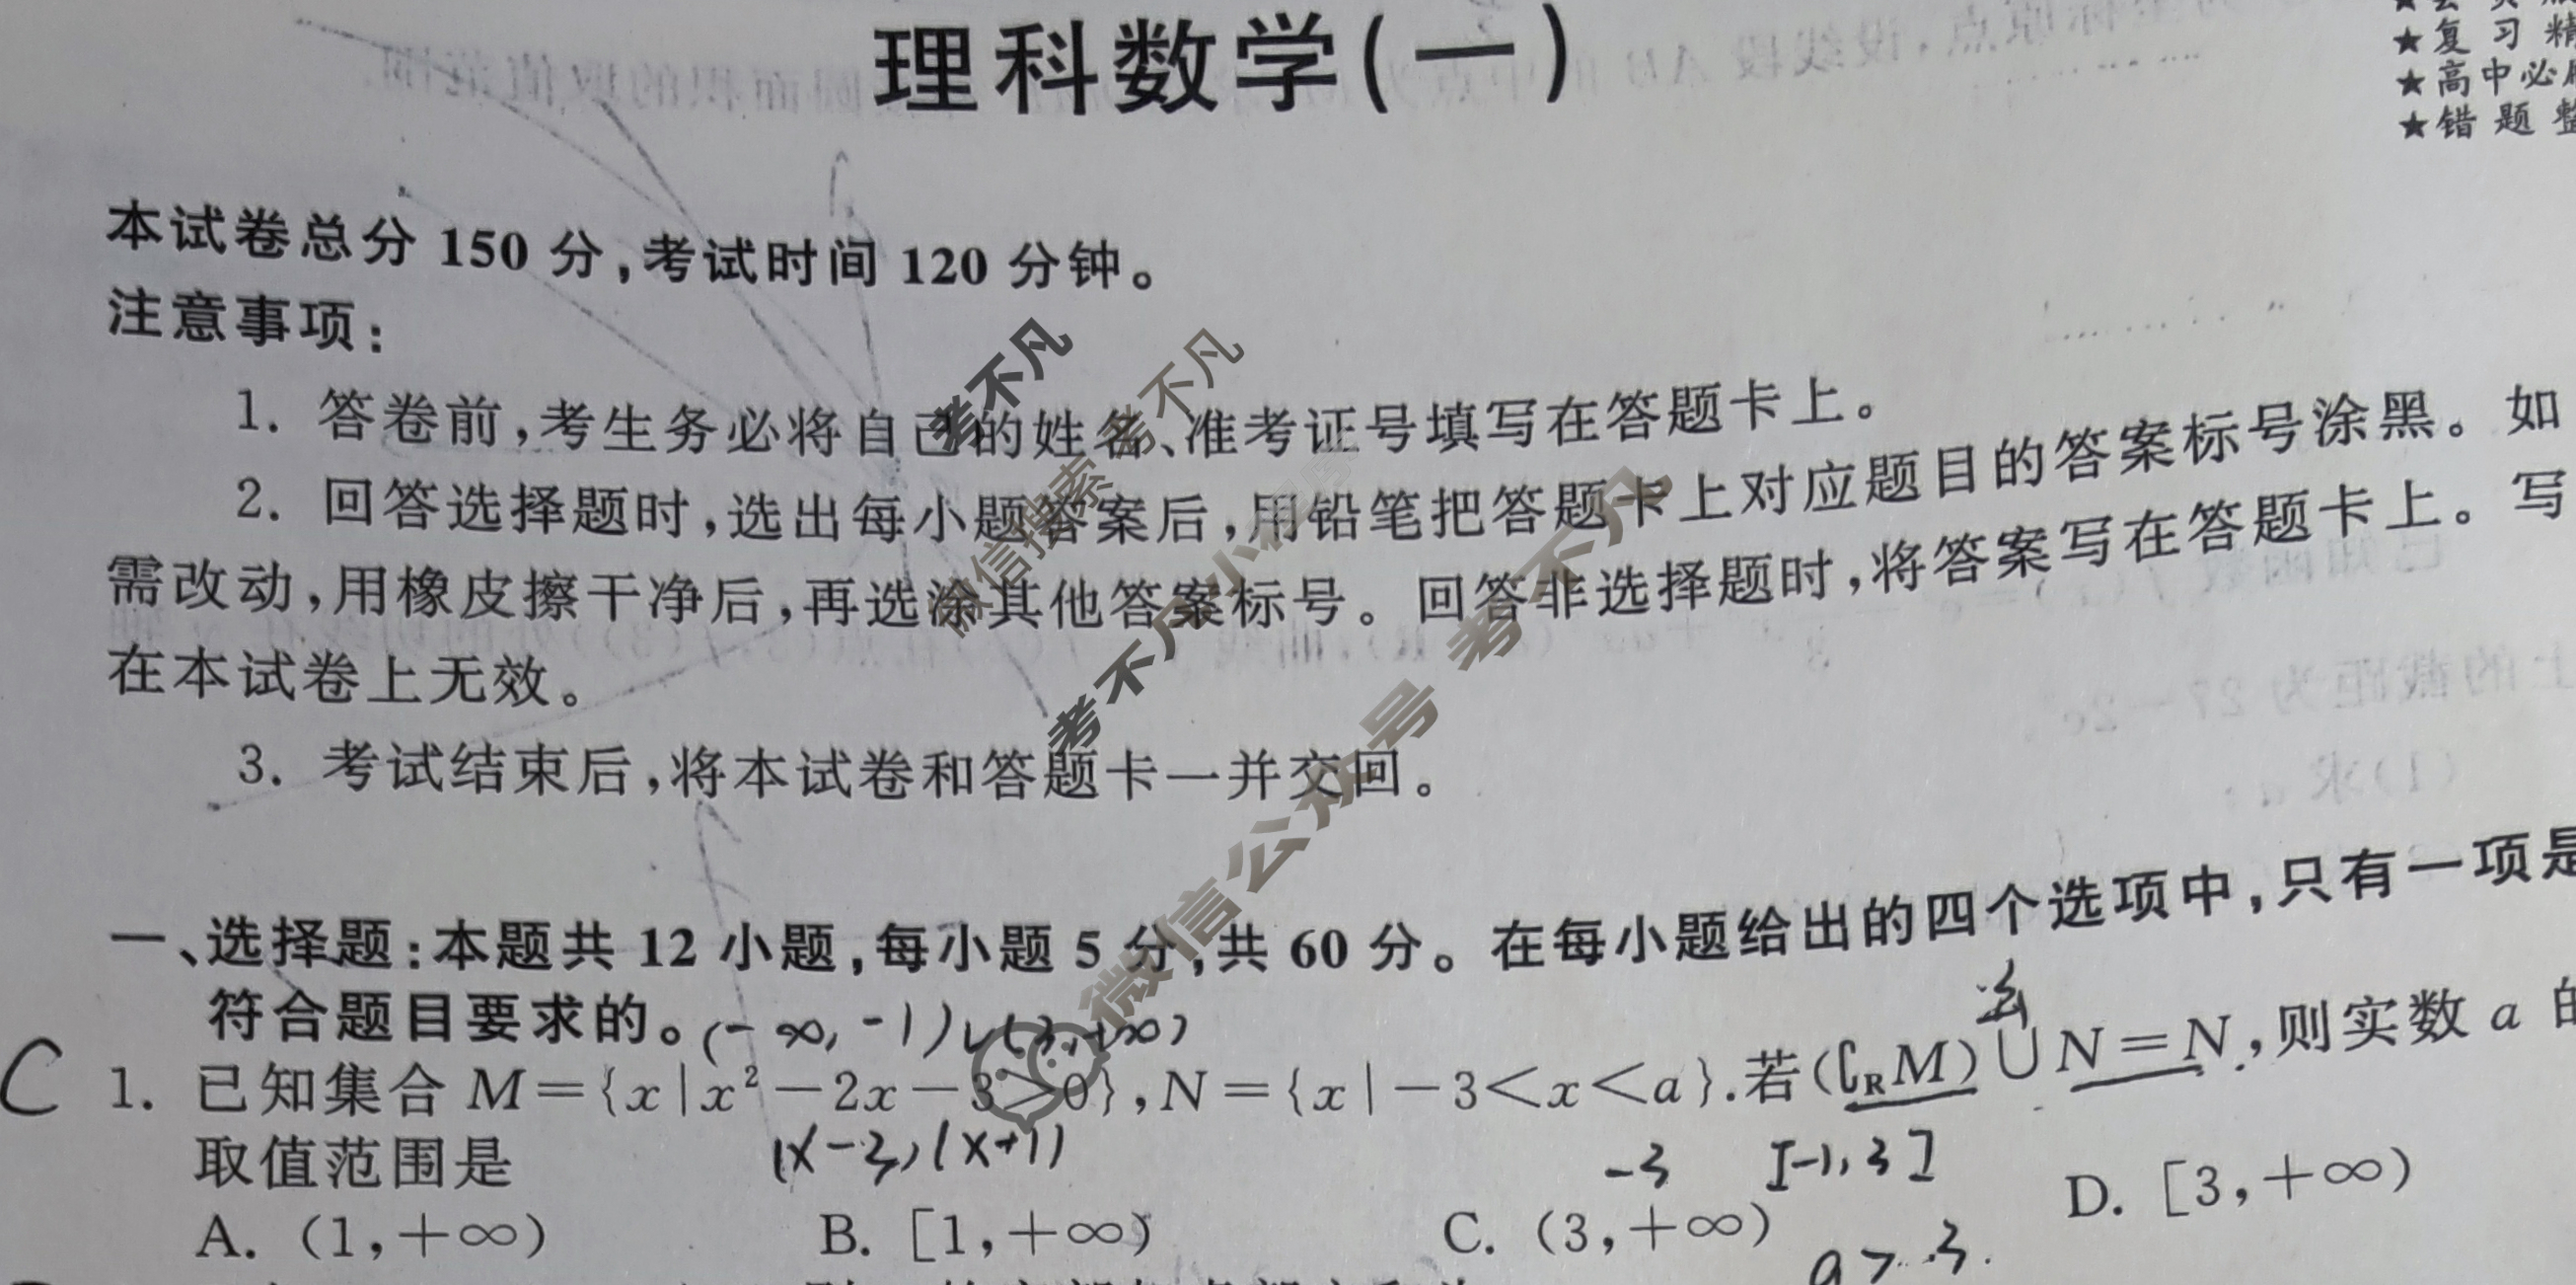 理科数学(一)
★复习精
★高中必
★错题整
本试卷总分 150 分,考试时间 120 分钟。
注意事项:
1. 答卷前,考生务必将自己的姓名、准考证号填写在答题卡上。
2. 回答选择题时,选出每小题答案后,用铅笔把答题卡上对应题目的答案标号涂黑。如
需改动,用橡皮擦干净后,再选涂其他答案标号。回答非选择题时,将答案写在答题卡上。写
在本试卷上无效。
3. 考试结束后,将本试卷和答题卡一并交回。
考不凡
考不凡
微信搜索
考不凡小程序
微信公众号 考不凡
一、选择题:本题共 12 小题,每小题 5 分,共 60 分。在每小题给出的四个选项中,只有一项是
符合题目要求的。
(-∞,-1)∪(3,+∞)
C
1. 已知集合 M={x|x²-2x-3>0},N={x|-3<x<a}.若(∁RM)∪N=N,则实数 a 的
取值范围是
(x-3)(x+1)
-3 [-1,3]
A. (1,+∞) B. [1,+∞) C. (3,+∞) D. [3,+∞)
a>3.